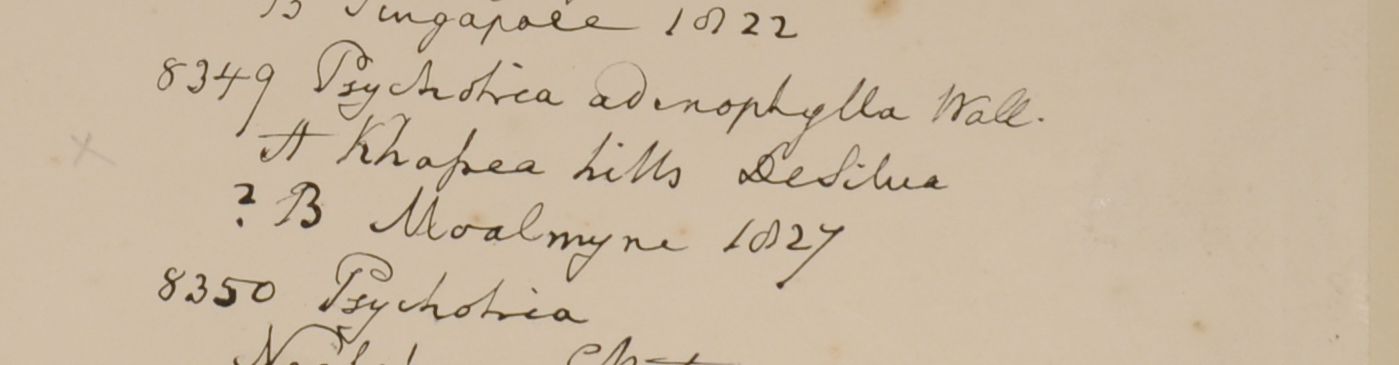 B Singapore 1822
8349 Psychotria adenophylla Wall.
A Khasea hills DeSilva
? B Moalmyne 1827
8350 Psychotria